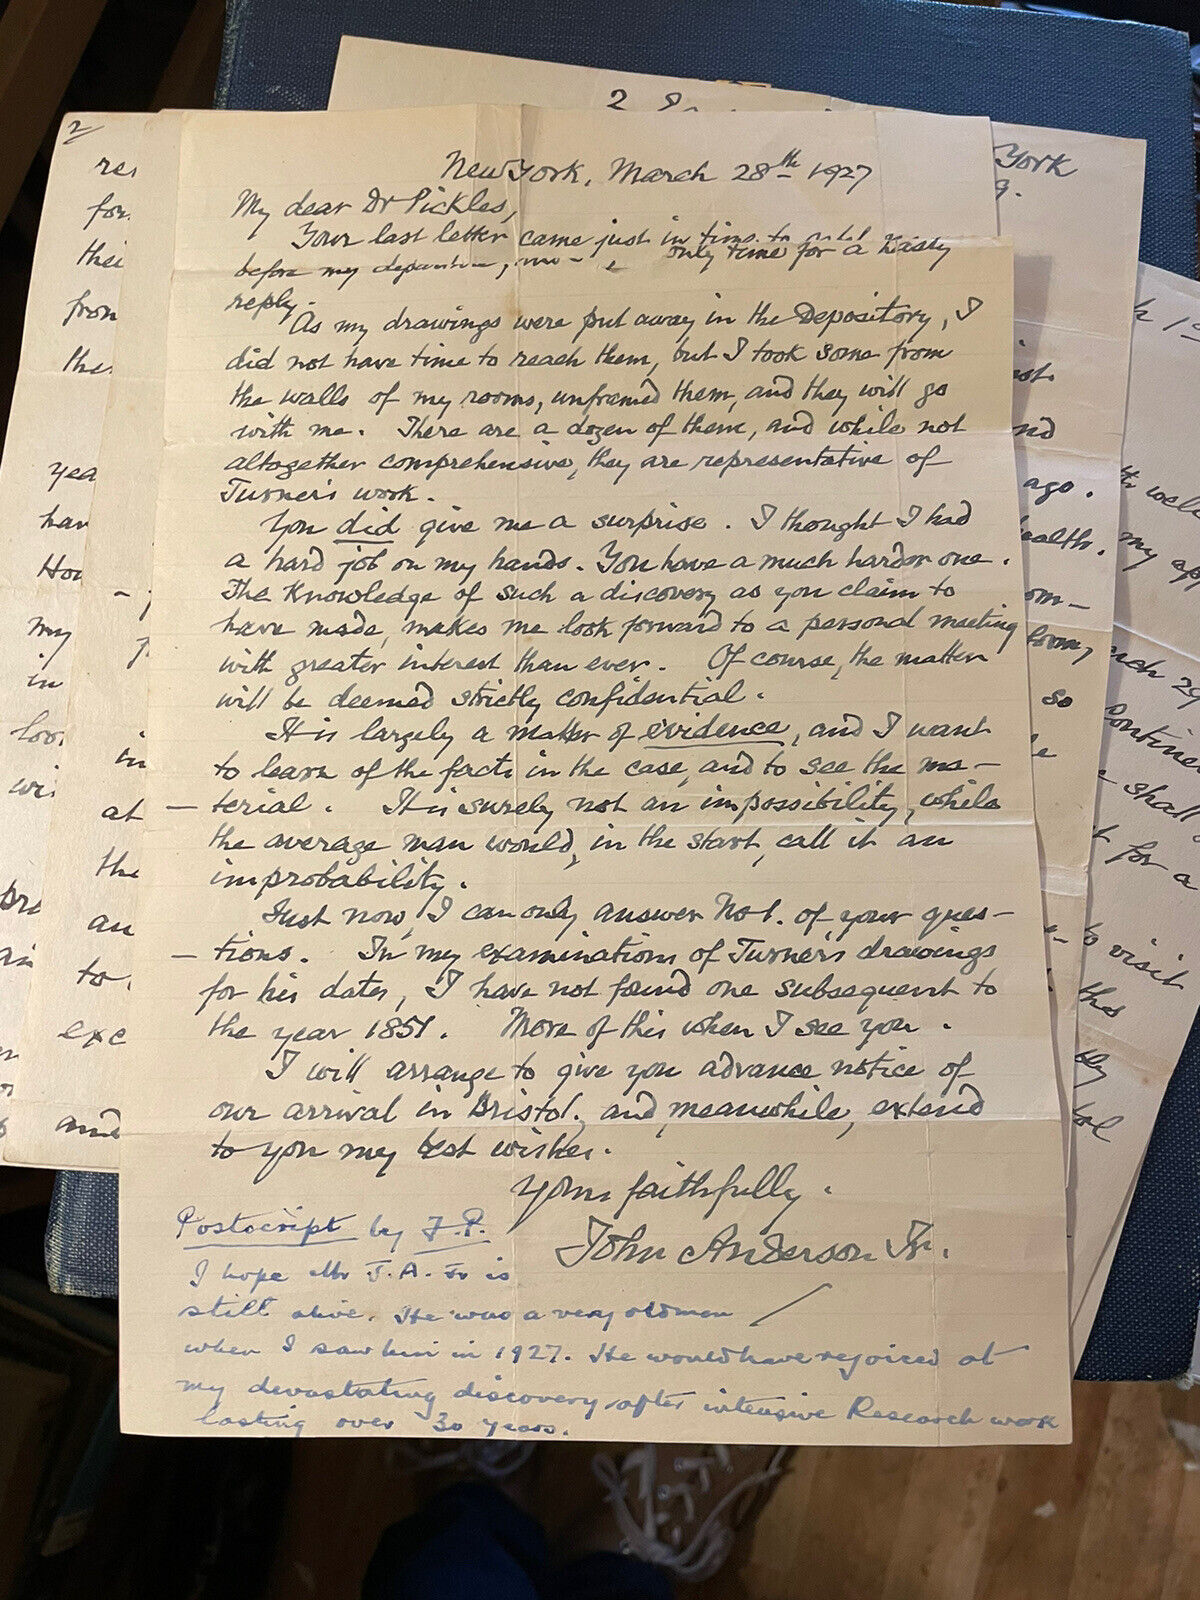 New York, March 28th 1927
My dear Dr Pickles,
Your last letter came just in time to
before my departure, only time for a hasty
reply.
As my drawings were put away in the Depository, I
did not have time to reach them, but I took some from
the walls of my rooms, unframed them, and they will go
with me. There are a dozen of them, and while not
altogether comprehensive, they are representative of
Turner's work.
You did give me a surprise. I thought I had
a hard job on my hands. You have a much harder one.
The Knowledge of such a discovery as you claim to
have made, makes me look forward to a personal meeting
with greater interest than ever. Of course, the matter
will be deemed strictly confidential.
It is largely a matter of evidence, and I want
to learn of the facts in the case, and to see the ma-
-terial. It is surely not an impossibility, while
the average man would, in the start, call it an
improbability.
Just now, I can only answer No 1. of your ques-
-tions. In my examinations of Turner's drawings
for his dates, I have not found one subsequent to
the year 1851. More of this when I see you.
I will arrange to give you advance notice of
our arrival in Bristol, and, meanwhile, extend
to you my best wishes.
Yours faithfully.
John Anderson Jr.
Postcript by F.P.
I hope Mr J.A. Jr is
still alive. He was a very old man
when I saw him in 1927. He would have rejoiced at
my devastating discovery after intensive Research work
lasting over 30 years.
2
re
for
thei
from
the
yea
har
Hou
my
in
at
the
an
to
exc
and
2
York
9.
ist
nd
ago.
health.
om-
form,
so
my app
rch 29
Continen
shall
for a
to visit
the